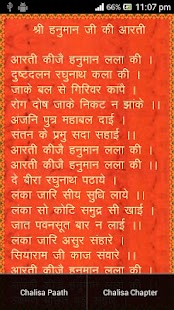 11:07 pm
श्री हनुमान जी की आरती
आरती कीजे हनुमान लला की ।
दुष्टदलन रघुनाथ कला की ।
जाके बल से गिरिवर कापै ।
रोग दोष जाके निकट न झाके ।।
अजनि पुत्र महाबल दाई ।
संतन के प्रभु सदा सहाई ।
आरती कीजे हनुमान लला की ।
दे बीरा रघुनाथ पठाये ।
लंका जारि सीय सुधि लाये ।
लंका सो कोति समुद्र सी खाई ।
जात पवनसूत बार न लाई ।
लंका जारि असुर संहारे ।
सियाराम जी काज संवारे ।
आरती कीजे हनुमान लला की ।
Chalisa Paath
Chalisa Chapter